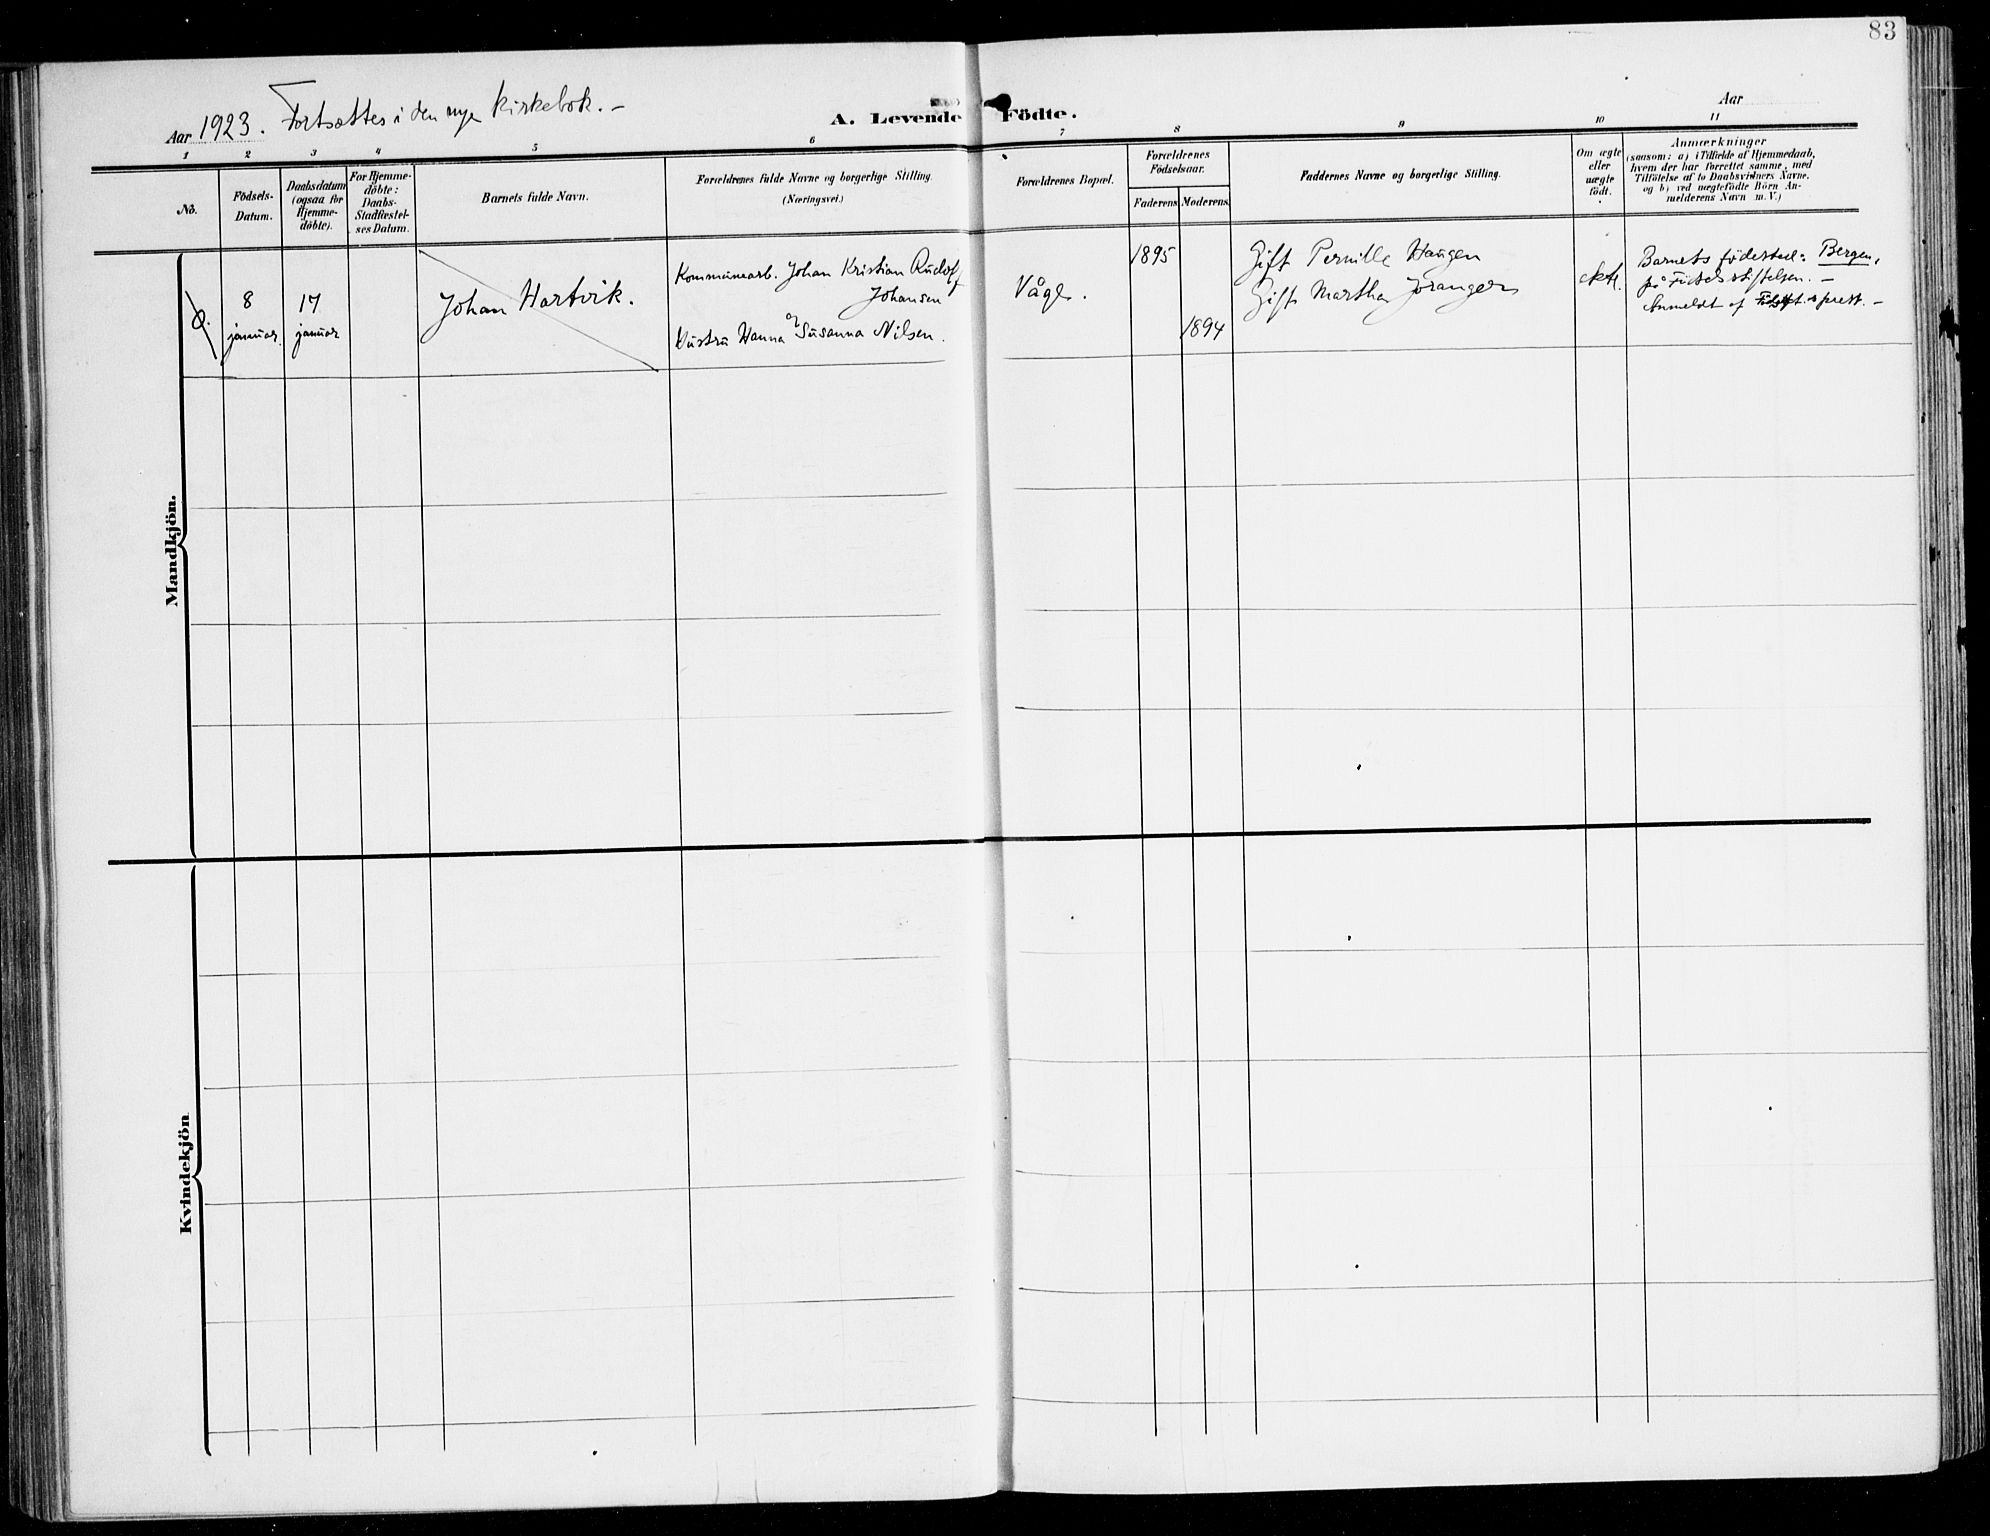 83
Aar 1923. Fortsættes i den nye kirkebok. –
A. Levende Födte.
Aar
1 2 3 4 5 6 7 8 9 10 11
No.
Födsels-
Datum.
Daabsdatum
(ogsaa for
Hjemme-
döbte).
For Hjemme-
döbte:
Daabs-
Stadfæstel-
ses Datum.
Barnets fulde Navn.
Forældrenes fulde Navne og borgerlige Stilling.
(Næringsvei.)
Forældrenes Bopæl.
Forældrenes
Födselsaar.
Faderens Moderens
Faddernes Navne og borgerlige Stilling.
Om ægte
eller
uægte
födt.
Anmærkninger
(saasom: a) i Tilfælde af Hjemmedaab,
hvem der har forrettet samme, med
Tilföielse af to Daabsvidners Navne,
og b) ved uægtefödte Börn An-
melderens Navn m. V.)
Mandkjön.
8
januar.
17
januar
Johan Hartvik.
Kommunearb. Johan Kristian Rudolf
Johansen
og
Hustru Hanna Susanna Nilsen.
Våge.
1895
1894
Gift Pernille Haugen
Gift Martha
Barnets födested: Bergen,
på Födselsstiftelsen. –
Anmeldt af prest. –
Kvindekjön